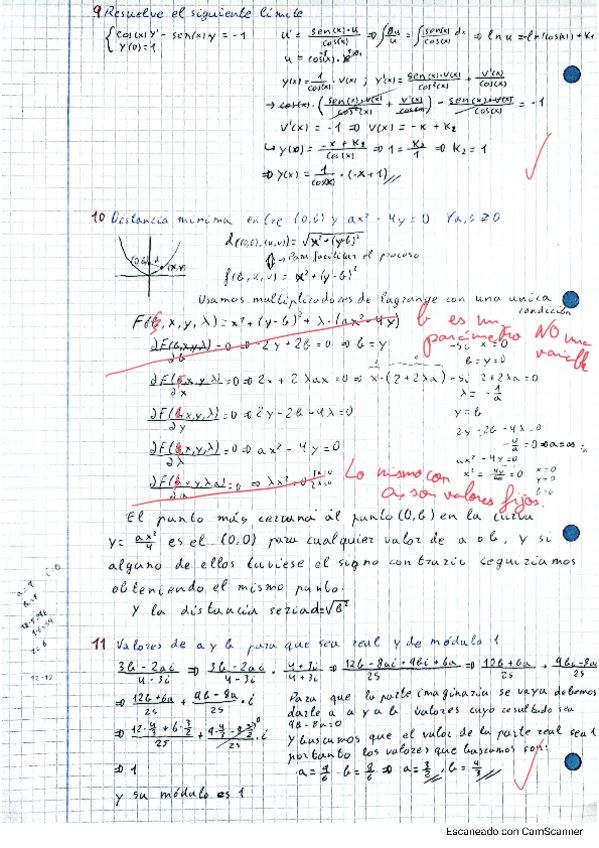 9 Resuelve el siguiente límite
{cos(x)y' - sen(x)y = -1
y(0)=1
u' = sen(x)·u / cos(x) ⇒ ∫ du/u = ∫ sen(x)/cos(x) dx ⇒ ln u = -ln(cos(x)) + K1
y(x) = 1/cos(x) · v(x) ; y'(x) = sen(x)·v(x)/cos²(x) + v'(x)/cos(x)
→ cos(x) · (sen(x)·v(x)/cos²(x) + v'(x)/cos(x)) - sen(x)·v(x)/cos(x) = -1
v'(x) = -1 ⇒ v(x) = -x + K2
↳ y(x) = -x + K2 / cos(x) ⇒ 1 = K2/1 ⇒ K2 = 1
⇒ y(x) = 1/cos(x) · (-x+1)
10 Distancia mínima entre (0,b) y ax² - 4y = 0 ∀a,b ≥ 0
d((0,b),(x,y)) = √x² + (y-b)²
→ Para facilitar el proceso
f(b,x,y) = x² + (y-b)²
Usamos multiplicadores de lagrange con una unica
condición
F(b, x, y, λ) = x² + (y-b)² + λ·(ax² - 4y)
b es un
parámetro NO una
variable
∂F(b,x,y,λ)/∂b = 0 ⇒ 2y + 2b = 0 ⇒ b = y
-si x = 0
b = y = 0
∂F(b,x,y,λ)/∂x = 0 ⇒ 2x + 2λax = 0 ⇒ x·(2+2λa) -si 2+2λa = 0
λ = -1/a
y = b
∂F(b,x,y,λ)/∂y = 0 ⇒ 2y - 2b - 4λ = 0
2y - 2b - 4λ = 0
∂F(b,x,y,λ)/∂λ = 0 ⇒ ax² - 4y = 0
ax² - 4y = 0
x = 0
y = 0
b = 0
Lo mismo con
a, son valores fijos.
El punto más cercano al punto (0,b) en la curva
y = ax²/4 es el (0,0) para cualquier valor de a o b, y si
alguno de ellos tuviese el signo contrario seguiriamos
obteniendo el mismo punto.
Y la distancia seria d=√b²
11 Valores de a y b para que sea real y de módulo 1
3b - 2ai / 4 - 3i ⇒ 3b - 2ai / 4 - 3i · 4 + 3i / 4 + 3i ⇒ 12b - 8ai + 9bi + 6a / 25 ⇒ 12b + 6a / 25 + 9bi - 8ai
⇒ 12b + 6a / 25 + 9b - 8a / 25 · i
Para que la parte imaginaria se vaya debemos
darle a a y a b valores cuyo resultado sea
9b - 8a = 0
Y buscamos que el valor de la parte real sea 1
portanto los valores que buscamos son:
⇒ 12·4/3 + 6·3/2 / 25 + 9·4/3 - 8·3/2 / 25 · i
a = 9/6 b = 8/6 ⇒ a = 3/2 , b = 4/3
⇒ 1
y su módulo es 1
Escaneado con CamScanner